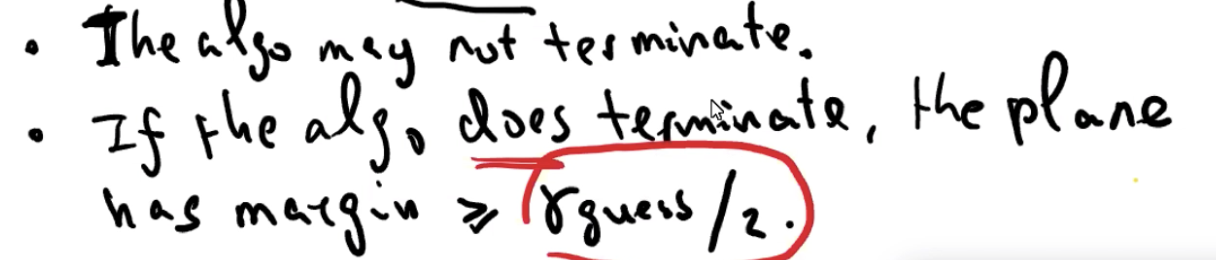 • The algo may not terminate.
• If the algo does terminate, the plane
has margin ≥ γguess/2.